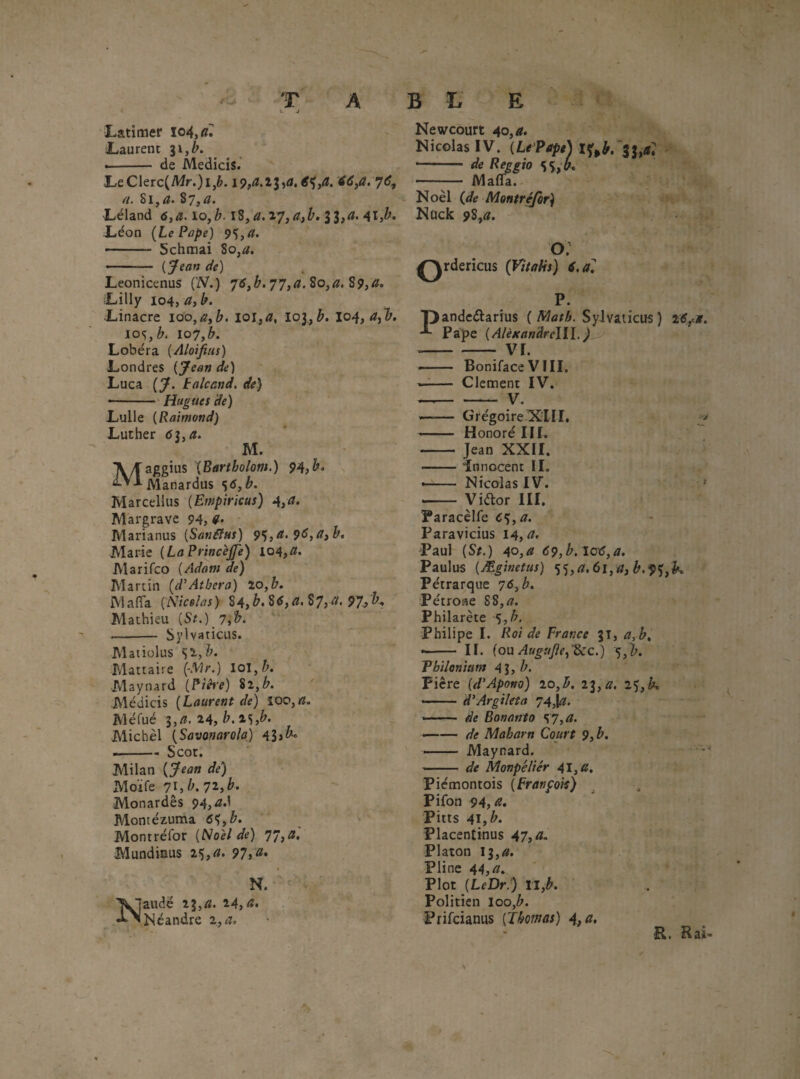 TABLE
Latimer 104,a.
Laurent 31,b.
—— de Medicis.
Le Clerc(Mr.)1,b. 19,a.23,a. 65,a. 66,a. 76,
a. 81,a. 87,a.
Léland 6,a. 10,b. 18,a. 27,a,b. 33,a. 41,b.
Léon (Le Pape) 95,a.
—— Schmai 80,a.
—— (Jean de)
Leonicenus (N.) 76,b. 77,a. 80,a. 89,a.
Lilly 104,a,b.
Linacre 100,a,b. 101,a, 103,b. 104, a,b.
105,b. 107,b.
Lobéra (Aloifius)
Londres (Jean de)
Luca (J. Falcand. de)
—— Hugues de)
Lulle (Raimond)
Luther 63,a.
M.
Maggius (Bartholom.) 94,b.
Manardus 56,b.
Marcellus (Empiricus) 4,a.
Margrave 94,a.
Marianus (Sanctus) 95,a. 96,a,b.
Marie (La Princèffe) 104,a.
Marifco (Adam de)
Martin (d'Athera) 20,b.
Maffa (Nicolas) 84,b. 86,a. 87,a. 97,b.
Mathieu (St.) 7,b.
—— Sylvaticus.
Matiolus 52,b.
Mattaire (Mr.) 101,b.
Maynard (Pière) 82,b.
Médicis (Laurent de) 100,a.
Méfué 3,a. 24,b. 25,b.
Michèl (Savonarola) 43,b.
—— Scot.
Milan (Jean de)
Moïfe 71,b. 72,b.
Monardês 94,a.
Montézuma 65,b.
Montréfor (Noèl de) 77,a.
Mundinus 25,a. 97,a.
N.
Naudé 23,a. 24,a.
Néandre 2,a.
Newcourt 40,a.
Nicolas IV. (Le Pape) 15,b. 33,a.
—— de Reggio 55,b.
—— Maffa.
Noèl (de Montréfor)
Nuck 98,a.
O.
Ordericus (Vitalis) 6.a.
P.
Pandectarius (Math. Sylvaticus) 26,a.
Pape (AlèxandreIII.)
—— —— VI.
—— Boniface VIII.
—— Clement IV.
—— —— V.
—— Grégoire XIII.
—— Honoré III.
—— Jean XXII.
—— Innocent II.
—— Nicolas IV.
—— Victor III.
Paracèlfe 65,a.
Paravicius 14,a.
Paul (St.) 40,a 69,b. 106,a.
Paulus (Æginetus) 55,a. 61,a,b. 95,b.
Pétrarque 76,b.
Pétrone 88,a.
Philarète 5,b.
Philipe I. Roi de France 31, a,b.
—— II. (ou Augufte, &c.) 5,b.
Philonium 43,b.
Pière (d'Apono) 20,b. 23,a. 25,b.
—— d'Argileta 74,a.
—— de Bonanto 57,a.
—— de Maharn Court 9,b.
—— Maynard.
—— de Monpéliér 41,a.
Piémontois (François)
Pifon 94,a.
Pitts 41,b.
Placentinus 47,a.
Platon 13,a.
Pline 44,a.
Plot (Le Dr.) 11,b.
Politien 100,b.
Prifcianus (Thomas) 4,a.
R. Rai-